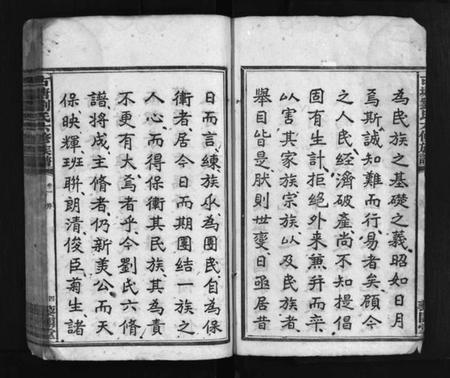 為民族之基礎之義昭如日月
焉斯誠知難而行易者矣顧今
之人民經濟破產尚不知提倡
固有生計拒絕外來兼并而卒
以害其家族宗族以及民族者
舉目皆是肰則世變日亟居昔
日而言練族乆為團民自為保
衛者居今日而期團結一族之
人心而得保衛其民族其為責
不更有大焉者乎今劉氏六脩
譜將成主脩者仍新美公而天
保映輝班聨朗清俊臣菊生諸